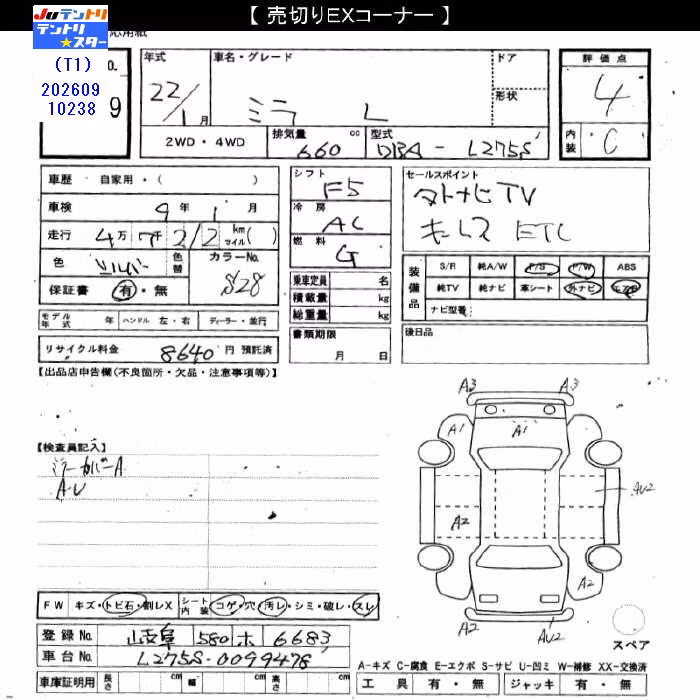 【 売切りEXコーナー 】
Juテントリ
テントリ
★スター
応用紙
(T1)
202609
10238
O.
9
年式
22/1月
車名・グレード
ミラ L
ドア
形状
評価点
4
内装 C
2WD・4WD
排気量 660 cc
型式 DBA-L275S
車歴 自家用・( )
車検 9年 1月
走行 4万 7千 212 km マイル( )
色 シルバー 色替
カラーNo. S28
保証書 有・無
モデル年式 年 ハンドル 左・右 ディーラー・並行
リサイクル料金 8640 円 預託済
シフト F5
冷房 AC
燃料 G
乗車定員 名
積載量 kg
総重量 kg
書類期限
月 日
セールスポイント
メモナビTV
キーレス ETC
装備品
S/R 純A/W P/S P/W ABS
純TV 純ナビ 革シート 外ナビ エアB
ナビ型番:
後日品
【出品店申告欄(不良箇所・欠品・注意事項等)】
【検査員記入】
ミラーカバーA
AU
A3 A3
A1 A1
A2 AU2
A2
A2 AU2
スペア
FW キズ・トビ石・割レX
シート内装 コゲ・穴・汚レ・シミ・破レ・スレ
登録No. 岐阜 580 ホ 6683
車台No. L275S-0099478
車庫証明用 長さ cm 幅 cm 高さ cm
A-キズ C-腐食 E-エクボ S-サビ U-凹ミ W-補修 XX-交換済
工具 有・無 ジャッキ 有・無